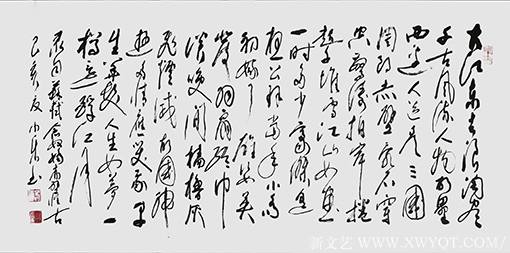 大江东去浪淘尽
千古风流人物故垒
西边人道是三国
周郎赤壁乱石穿
空惊涛拍岸捲
起千堆雪江山如画
一时多少豪杰遥
想公瑾当年小乔
初嫁了雄姿英
发羽扇纶巾
谈笑间樯橹灰
飞烟灭故国神
游多情应笑我早
生华发人生如梦一
樽还酹江月
录自苏轼念奴娇赤壁怀古
己亥夏小朱书
新文艺 WWW.XWYQT.COM